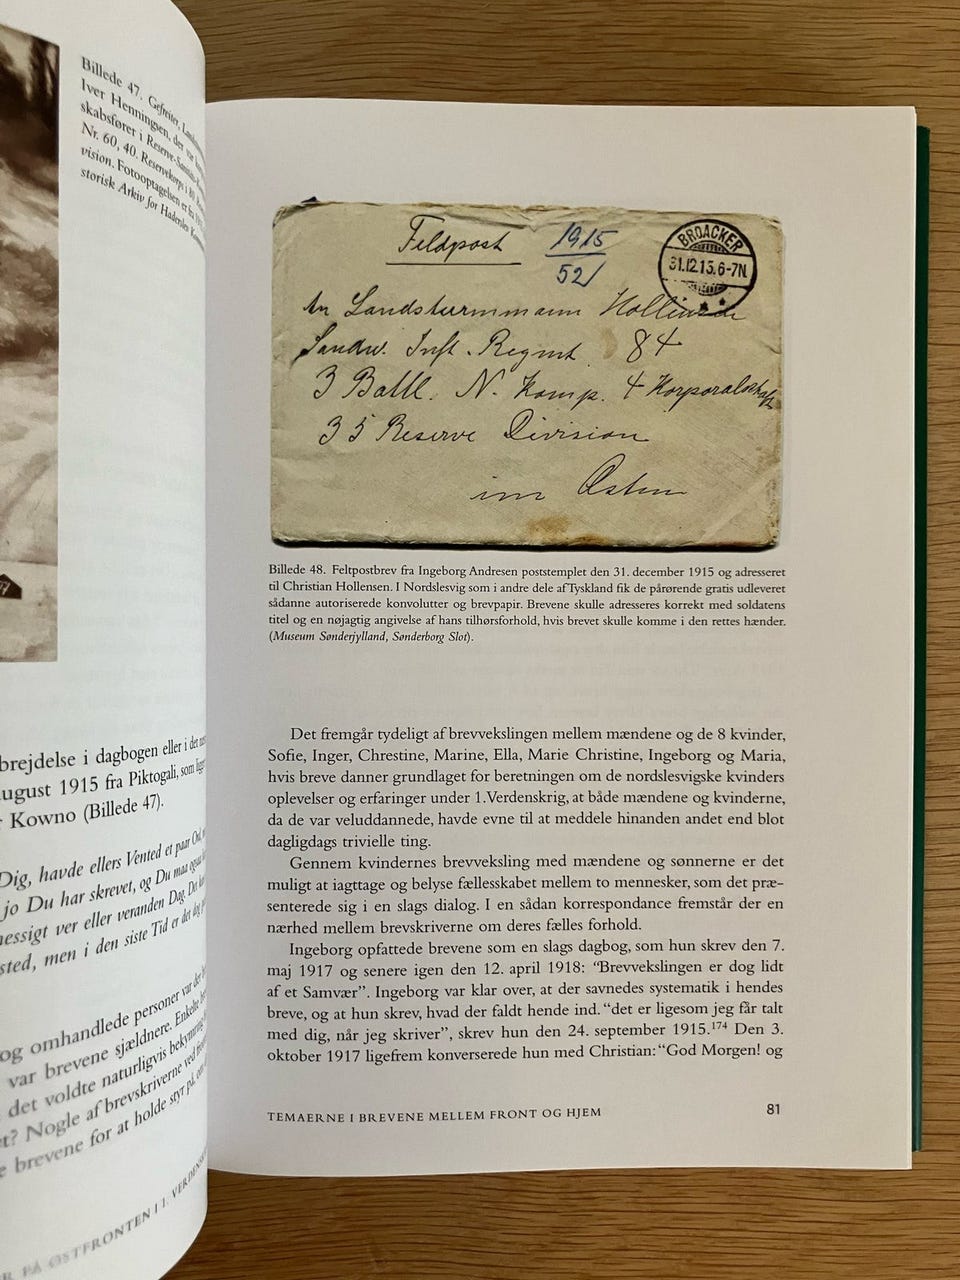 Billede 47. Gefreiter,
Iver Henningsen, der var
skabsfører i Reserve-Sanitäts-
Nr. 60, 40. Reservekorps i 80. Re
vision. Fotooptagelsen er fra
storisk Arkiv for Haderslev
brejdelse i dagbogen eller i det
ugust 1915 fra Piktogali, som
r Kowno (Billede 47).
Dig, havde ellers Vented et paar Ord,
jo Du har skrevet, og Du maa
messigt ver eller veranden Dag. Det
sted, men i den siste Tid er det
og omhandlede personer var der
var brevene sjældnere. Enkelte
det voldte naturligvis bekymring
et? Nogle af brevskriverne ved
e brevene for at holde styr på,
R PÅ ØSTFRONTEN I 1. VERDENS
Feldpost
1915
52/
BROACKER
31.12.15.6-7N.
An Landsturmmann Hollensen
Landw. Inft. Regmt 84
3 Batll. N. Komp. 4 Korporalschaft
35 Reserve Division
im Østen
Billede 48. Feltpostbrev fra Ingeborg Andresen poststemplet den 31. december 1915 og adresseret
til Christian Hollensen. I Nordslesvig som i andre dele af Tyskland fik de pårørende gratis udleveret
sådanne autoriserede konvolutter og brevpapir. Brevene skulle adresseres korrekt med soldatens
titel og en nøjagtig angivelse af hans tilhørsforhold, hvis brevet skulle komme i den rettes hænder.
(Museum Sønderjylland, Sønderborg Slot).
Det fremgår tydeligt af brevvekslingen mellem mændene og de 8 kvinder,
Sofie, Inger, Chrestine, Marine, Ella, Marie Christine, Ingeborg og Maria,
hvis breve danner grundlaget for beretningen om de nordslesvigske kvinders
oplevelser og erfaringer under 1.Verdenskrig, at både mændene og kvinderne,
da de var veluddannede, havde evne til at meddele hinanden andet end blot
dagligdags trivielle ting.
Gennem kvindernes brevveksling med mændene og sønnerne er det
muligt at iagttage og belyse fællesskabet mellem to mennesker, som det præ-
senterede sig i en slags dialog. I en sådan korrespondance fremstår der en
nærhed mellem brevskriverne om deres fælles forhold.
Ingeborg opfattede brevene som en slags dagbog, som hun skrev den 7.
maj 1917 og senere igen den 12. april 1918: “Brevvekslingen er dog lidt
af et Samvær”. Ingeborg var klar over, at der savnedes systematik i hendes
breve, og at hun skrev, hvad der faldt hende ind. “det er ligesom jeg får talt
med dig, når jeg skriver”, skrev hun den 24. september 1915.174 Den 3.
oktober 1917 ligefrem konverserede hun med Christian: “God Morgen! og
TEMAERNE I BREVENE MELLEM FRONT OG HJEM
81